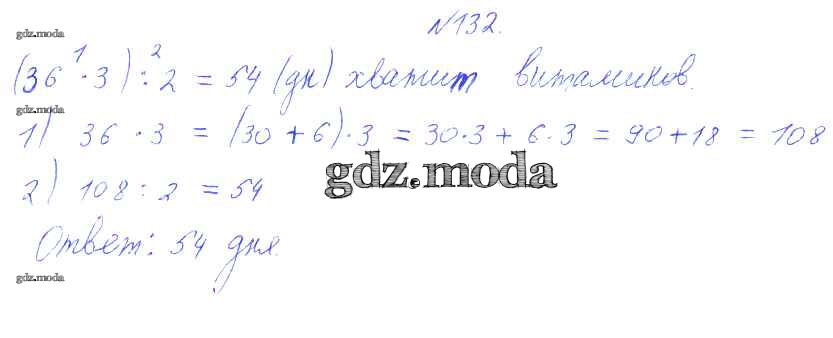 №132.
gdz.moda
(36 · 3) : 2 = 54 (дн) хватит витаминов.
gdz.moda
1) 36 · 3 = (30 + 6) · 3 = 30·3 + 6·3 = 90+18 = 108
gdz.moda
2) 108 : 2 = 54
Ответ: 54 дня.
gdz.moda